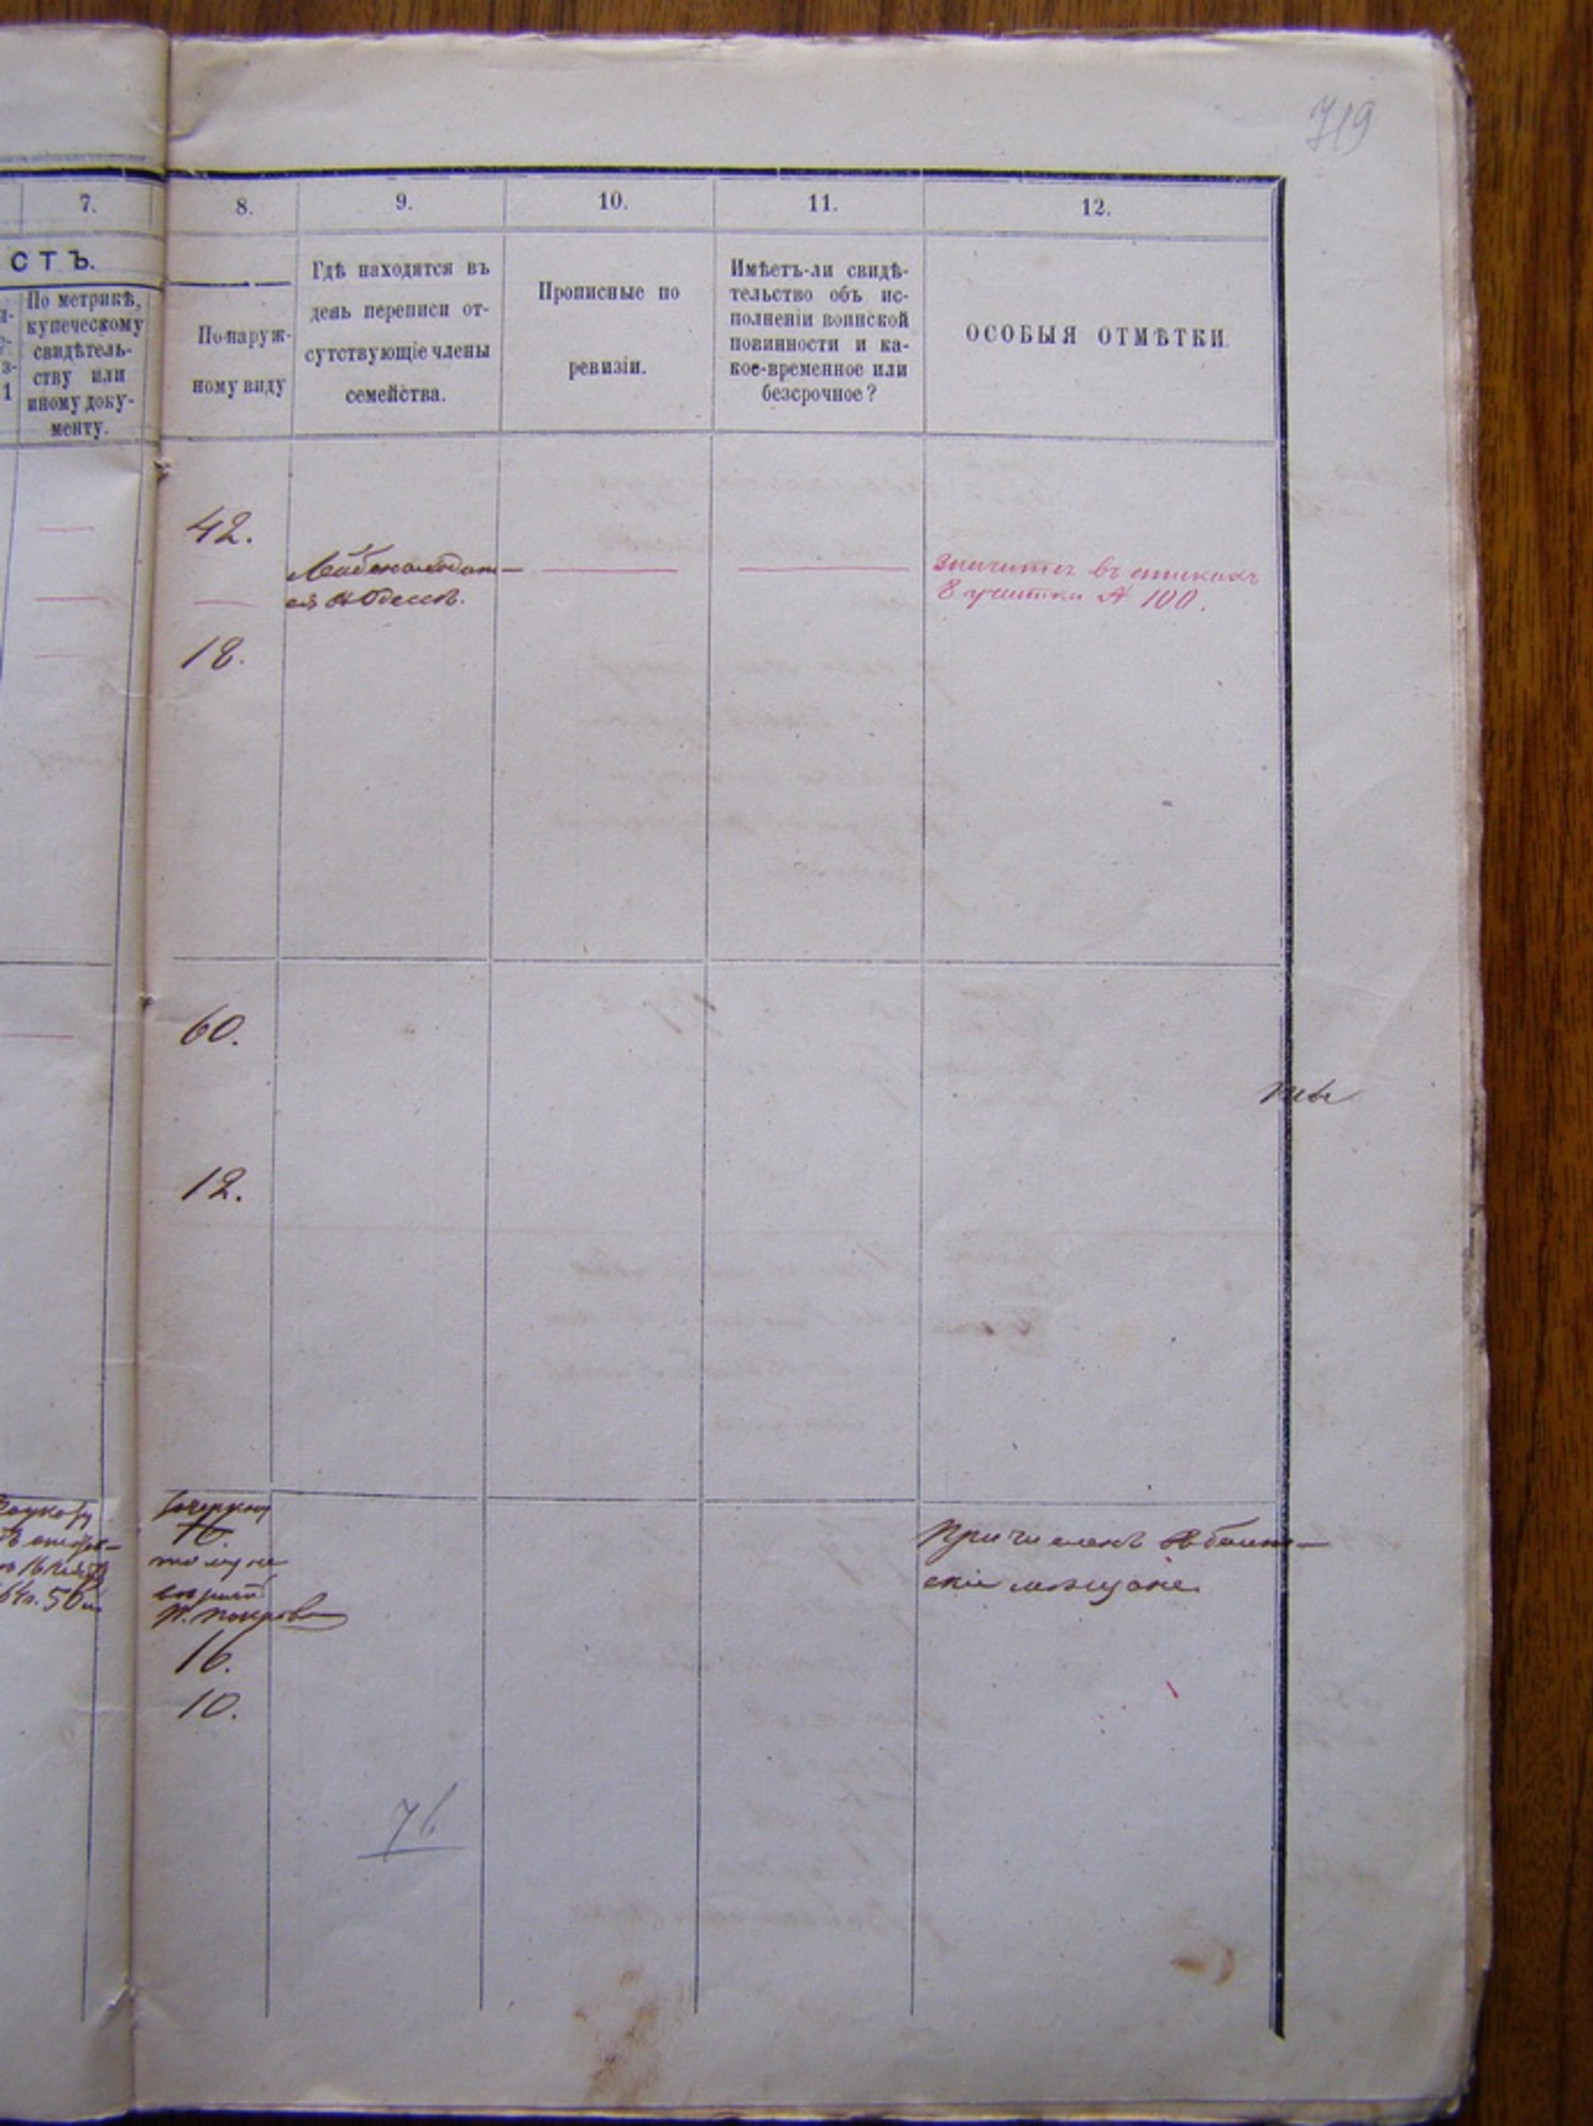 719
7.
8.
9.
10.
11.
12.
СТЪ.
По метрикѣ,
купеческому
свидѣтель-
ству или
иному доку-
менту.
По наруж-
ному виду
Гдѣ находятся въ
день переписи от-
сутствующіе члены
семейства.
Прописные по
ревизіи.
Имѣетъ-ли свидѣ-
тельство объ ис-
полненіи воинской
повинности и ка-
кое-временное или
безсрочное?
ОСОБЫЯ ОТМѢТКИ.
42.
Лейба находит-
ся в Одессѣ.
значится въ спискахъ
8 участка № 100.
18.
60.
12.
16.
10.
Причисленъ в
скіе мѣщане.
76